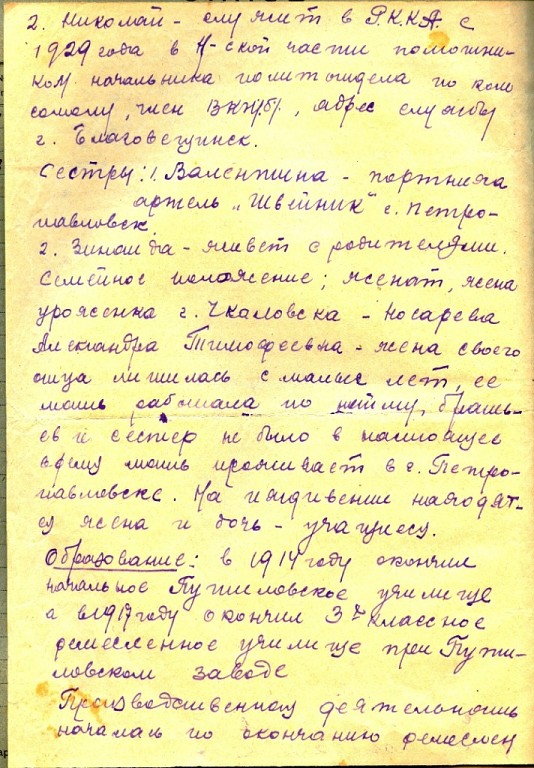 2. Николай - служит в Р.К.К.А. с
1929 года в Н-ской части помошни-
ком начальника политотдела по ком
сомолу, член ВКП(б), адрес службы
г. Благовещинск.
Сестры: 1. Валентина - портниха
артель „Швейник" г. Петро-
павловск
2. Зинаида - живет с родителями.
Семейное положение; женат, жена
уроженка г. Чкаловска - Носарева
Александра Тимофеевна - жена своего
отца лишилась с малых лет, ее
мать работала по найму, брать-
ев и сестер не было в настоящее
время мать проживает в г. Петро-
павловске. На иждивении находят-
ся жена и дочь - учащиеся.
Образование: в 1914 году окончил
начальное Путиловское училище
а в 1917 году окончил 3х классное
ремесленное училище при Пути-
ловском заводе
Производственная деятельность
началась по окончанию ремеслен